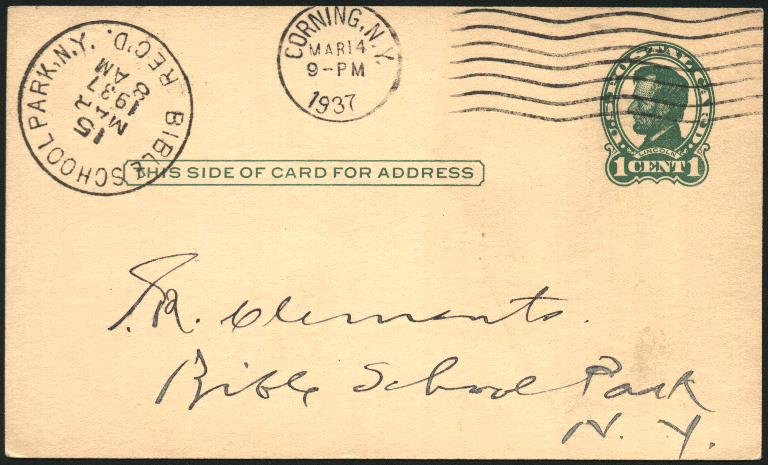 BIBLE SCHOOL PARK, N.Y. REC'D.
15
MAR
1937
8 AM
CORNING, N.Y.
MAR 14
9-PM
1937
U.S. POSTAL CARD
LINCOLN
1 CENT 1
THIS SIDE OF CARD FOR ADDRESS
Clements.
Bible School Park
N. Y.